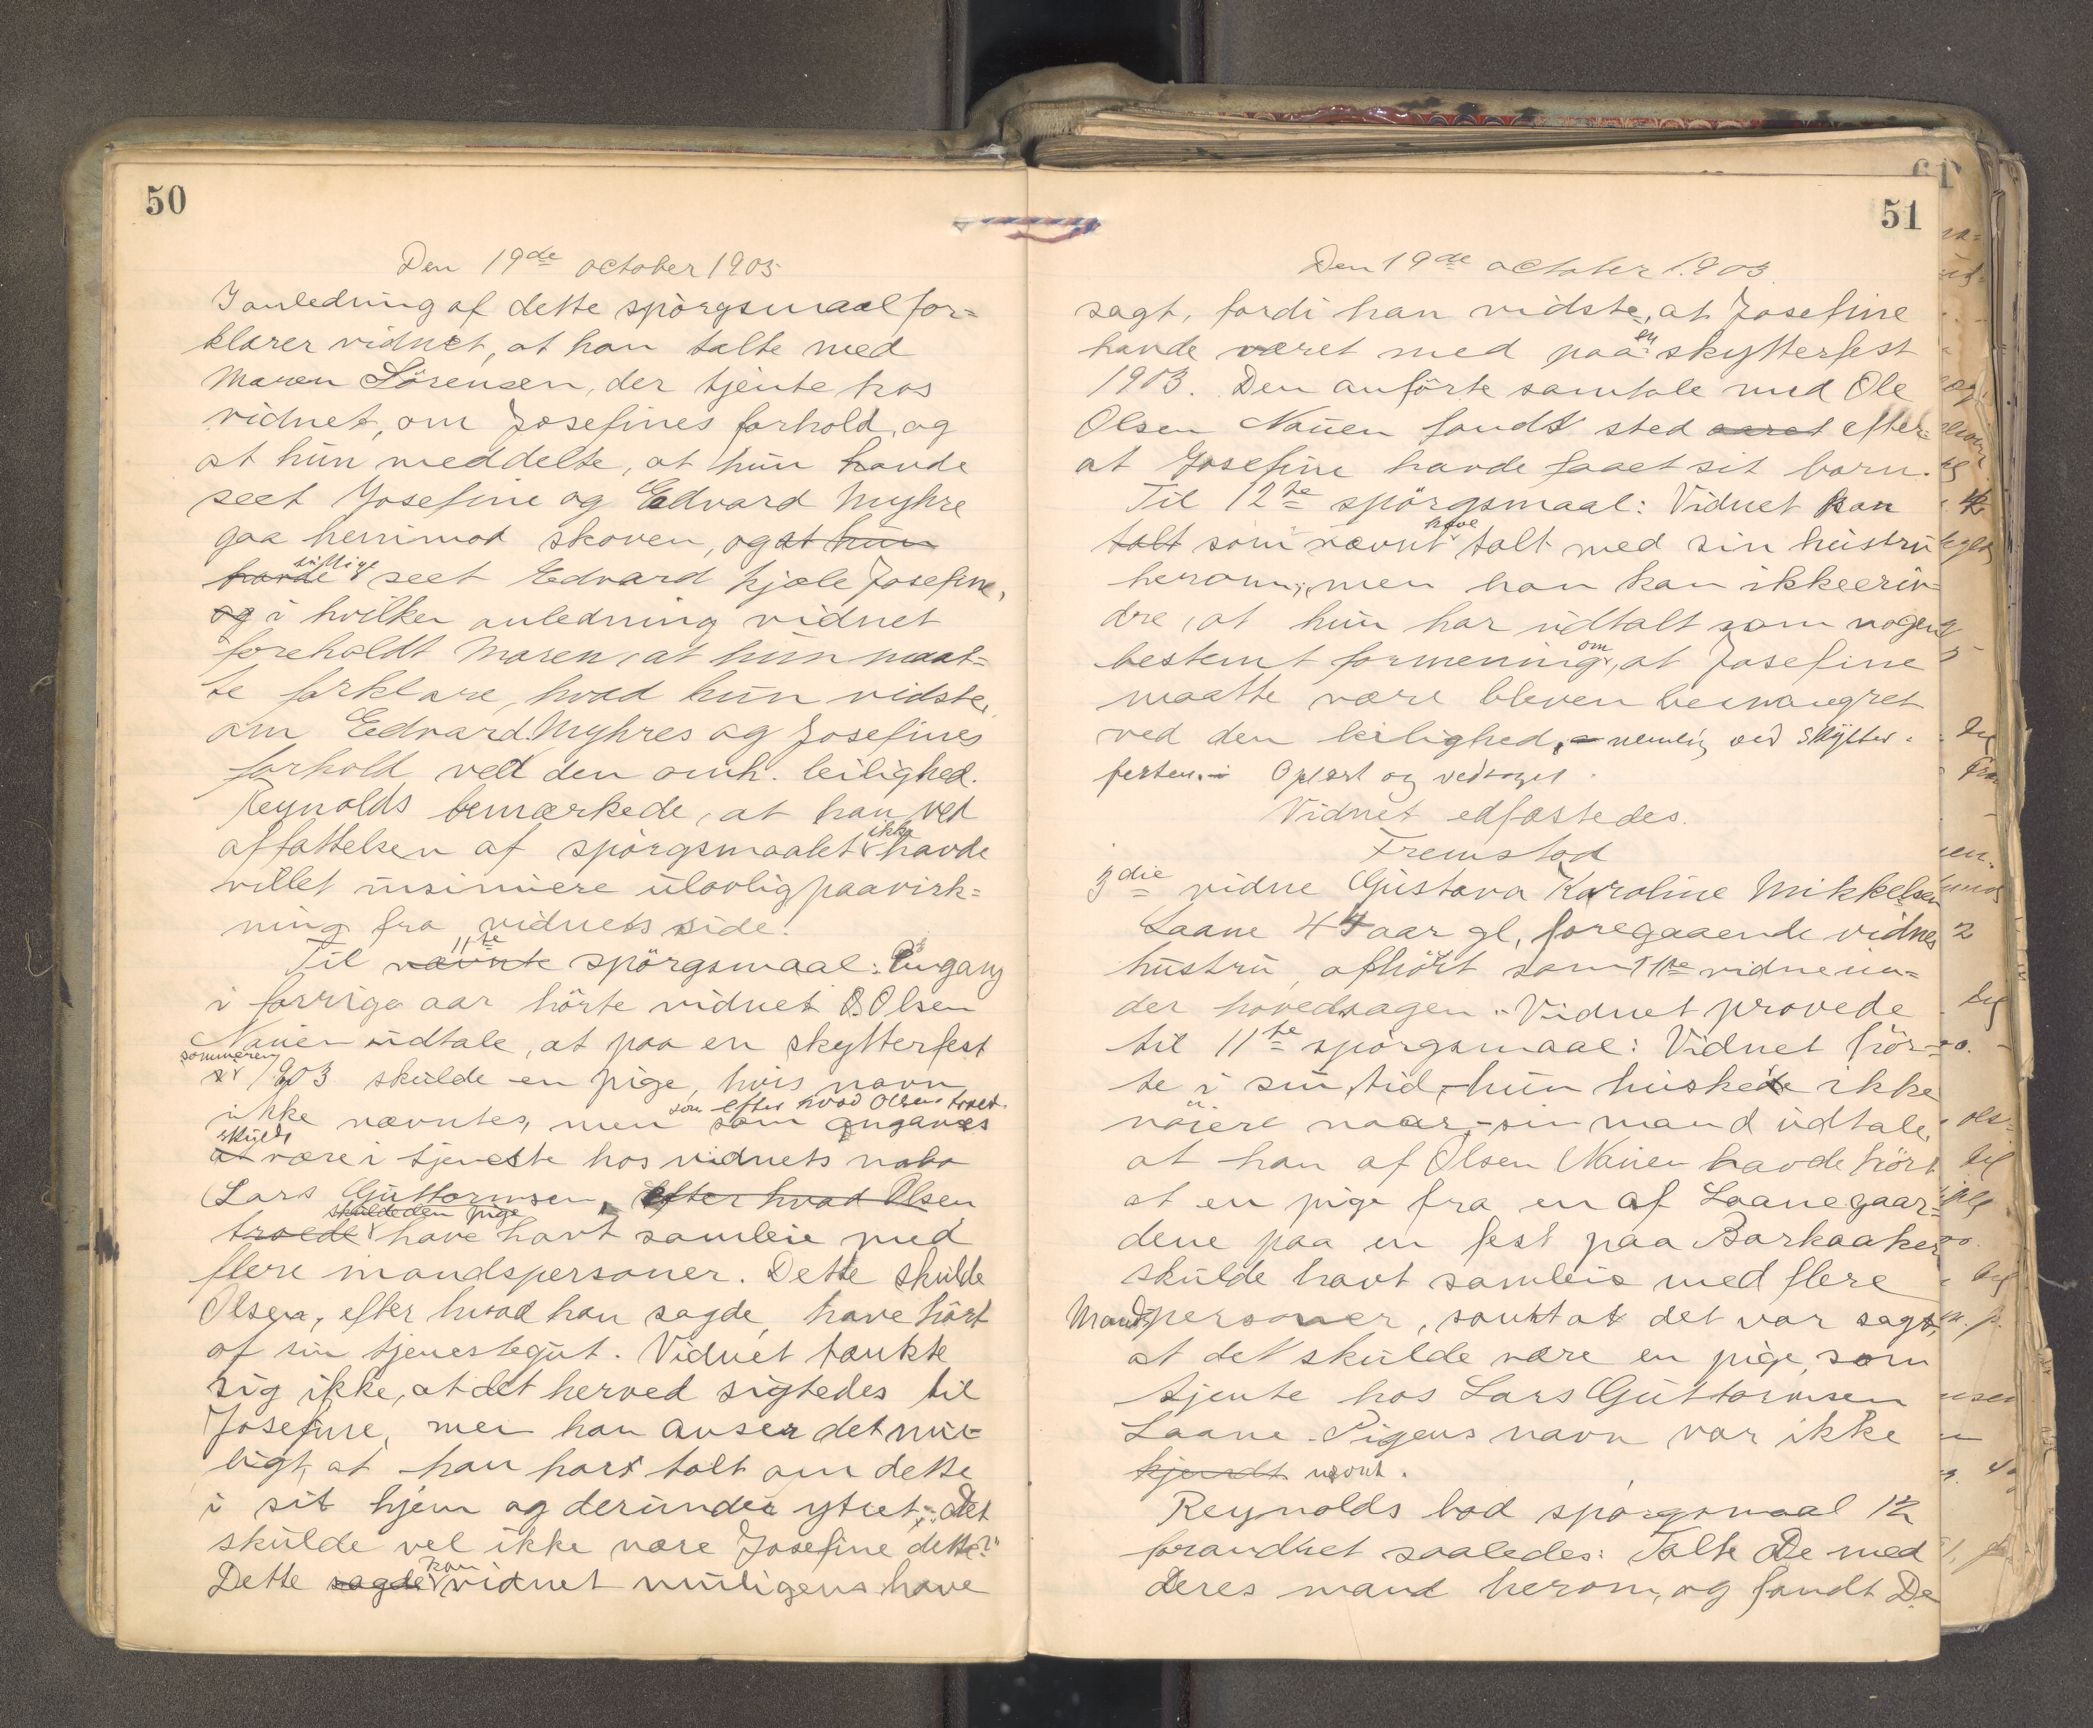 50
Den 19de october 1905
I anledning af dette spörgsmaal for=
klarer vidnet, at han talte med
Maren Sörensen, der tjente hos
vidnet, om Josefines forhold, og
at hun meddelte, at hun havde
seet Josefine og Edvard Myhre
gaa henimod skoven, og at hun
havde seet Edvard kjæle Josefine,
og i hvilken anledning vidnet
foreholdt Maren, at hun maat=
te forklare, hvad hun vidste,
om Edvard Myhres og Josefines
forhold ved den omh. leilighed.
Reynolds bemærkede, at han ved
affattelsen af spörgsmaalet ikke havde
villet insinuere ulovlig paavirk=
ning fra vidnets side.
Til nævnte 11te spörgsmaal: Engang
i forrige aar hörte vidnet O. Olsen
Nauen udtale, at paa en skytterfest
sommeren 1903 skulde en pige, hvis navn
ikke nævntes, men som efter hvad Olsen troede
skulde være i tjeneste hos vidnets nabo
Lars Guttormsen, efter hvad Olsen
troede skulde den pige have havt samleie med
flere mandspersoner. Dette skulde
Olsen, efter hvad han sagde, have hört
af sin tjenestegut. Vidnet tænkte
sig ikke, at det herved sigtedes til
Josefine, men han anser det mu=
ligt, at han har talt om dette
i sit hjem og derunder ytret: "Det
skulde vel ikke være Josefine dette?"
Dette sagde kan vidnet muligens have
51
Den 19de october 1903
sagt, fordi han vidste, at Josefine
havde været med paa en skytterfest
1903. Den anförte samtale med Ole
Olsen Nauen fandt sted aaret efter=
at Josefine havde faaet sit barn.
Til 12te spörgsmaal: Vidnet kan
talt som nævnt have talt med sin hustru
herom, men han kan ikke erin=
dre, at hun har udtalt som nogen
bestemt formening om, at Josefine
maatte være bleven besvangret
ved den leilighed, nemlig ved skytter=
festen. Oplæst og vedtaget.
Vidnet edfæstedes.
Fremstod
3die vidne Gustava Karoline Mikkelsen
Laane 44 aar gl, foregaaende vidnes
hustru, afhört som 11te vidne un=
der hovedsagen. Vidnet provede
til 11te spörgsmaal: Vidnet hör=
te i sin tid, hun huskede ikke
nöiere naar, sin mand udtale,
at han af Olsen Nauen havde hört
at en pige fra en af Laanegaar=
dene paa en fest paa Barkaaker
skulde havt samleie med flere
Mandspersoner, samt at det var sagt,
at det skulde være en pige, som
tjente hos Lars Guttormsen
Laane. Pigens navn var ikke
kjendt nævnt.
Reynolds bad spörgsmaal 12
forandret saaledes: Talte De med
deres mand herom, og fandt De